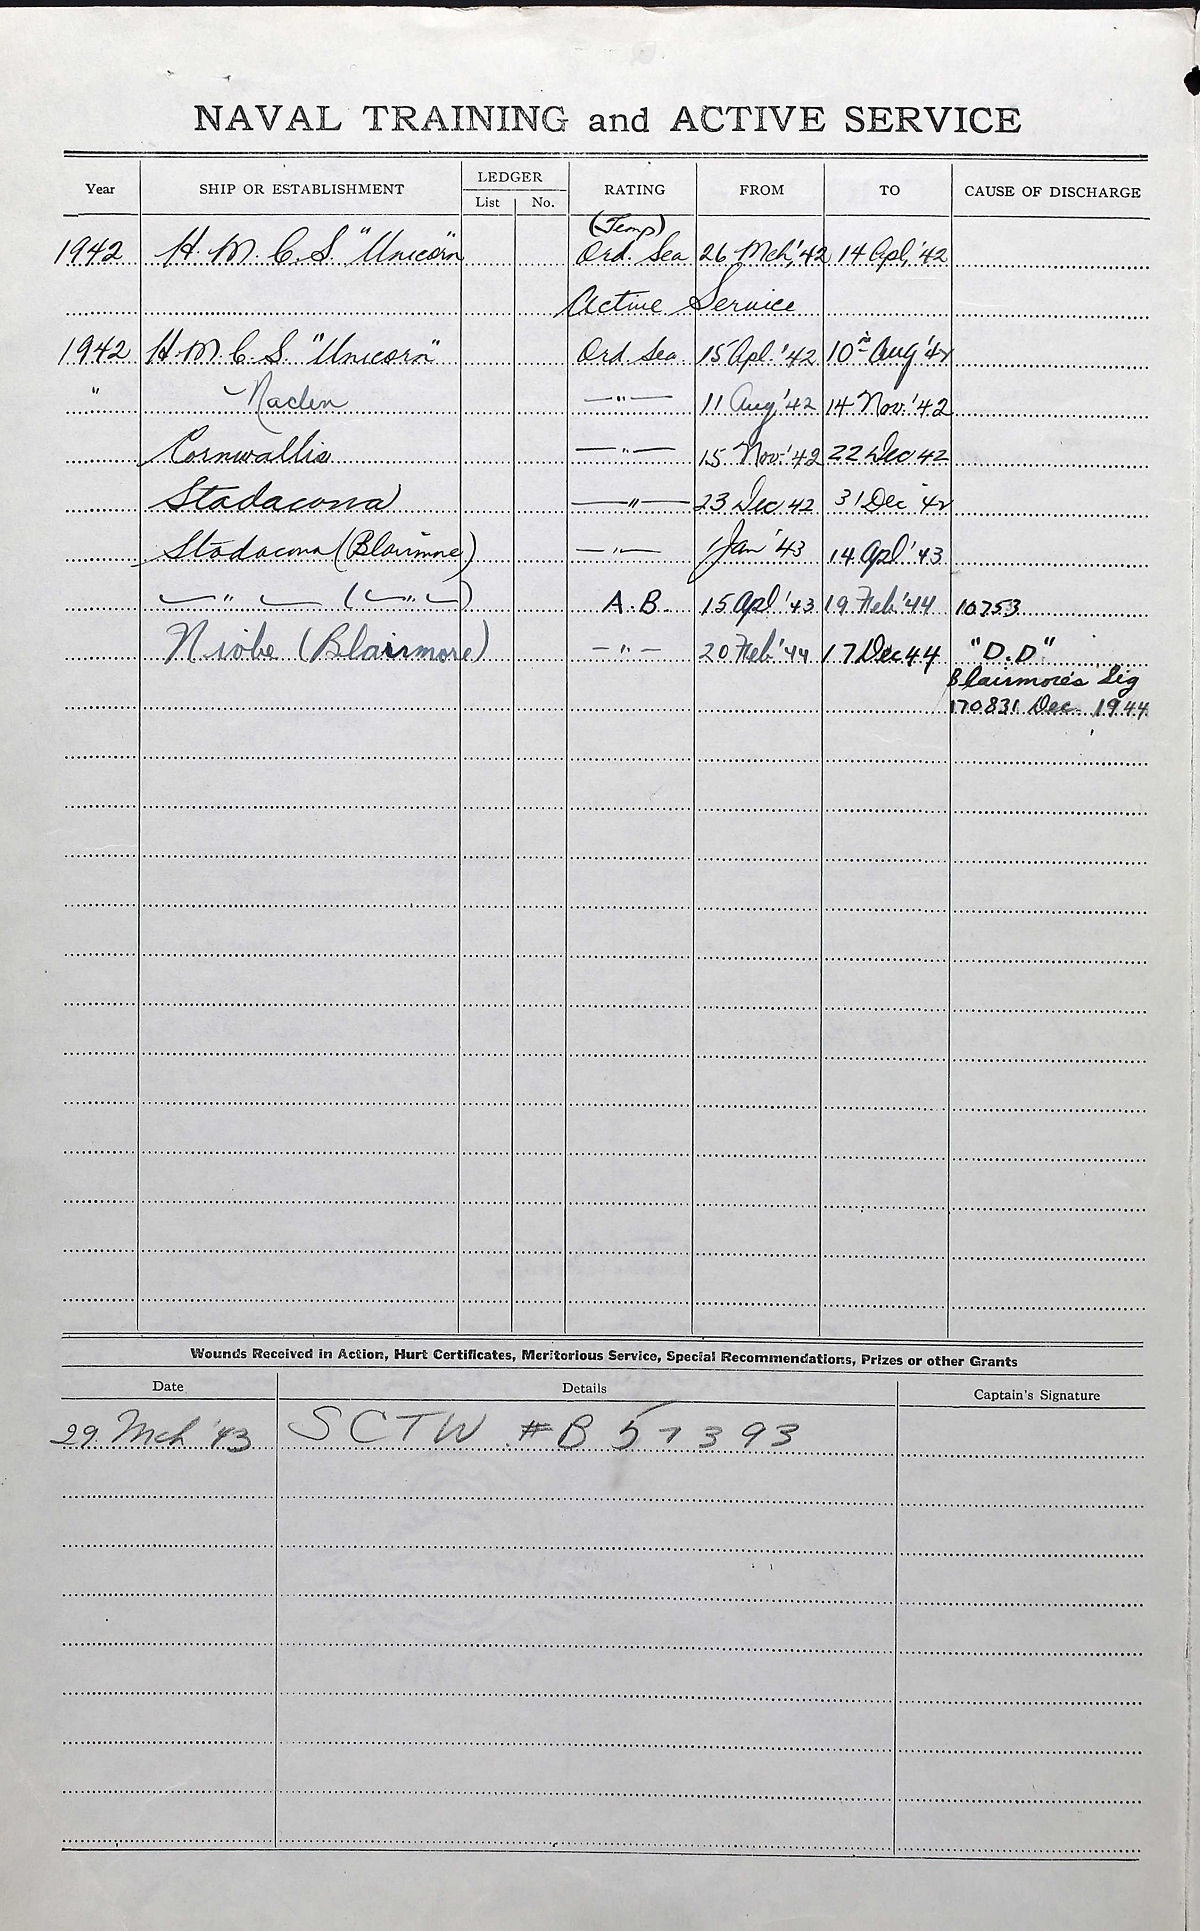 NAVAL TRAINING and ACTIVE SERVICE
Year SHIP OR ESTABLISHMENT LEDGER List No. RATING FROM TO CAUSE OF DISCHARGE
(Temp)
1942 H. M. C. S. "Unicorn" Ord. Sea 26 Mch, '42 14 Apl, '42
Active Service
1942 H. M. C. S. "Unicorn" Ord. Sea 15 Apl. '42 10 Aug '42
" Naden —"— 11 Aug '42 14 Nov. '42
Cornwallis —"— 15 Nov. '42 22 Dec 42
Stadacona —"— 23 Dec 42 31 Dec '42
Stadacona (Blairmore) —"— 1 Jan '43 14 Apl '43
—"— (—"—) A.B. 15 Apl '43 19 Feb '44 10753
Niobe (Blairmore) —"— 20 Feb '44 17 Dec 44 "D.D"
Blairmore's Sig
170831 Dec. 1944
Wounds Received in Action, Hurt Certificates, Meritorious Service, Special Recommendations, Prizes or other Grants
Date Details Captain's Signature
29 Mch '43 SCTW #B 57393